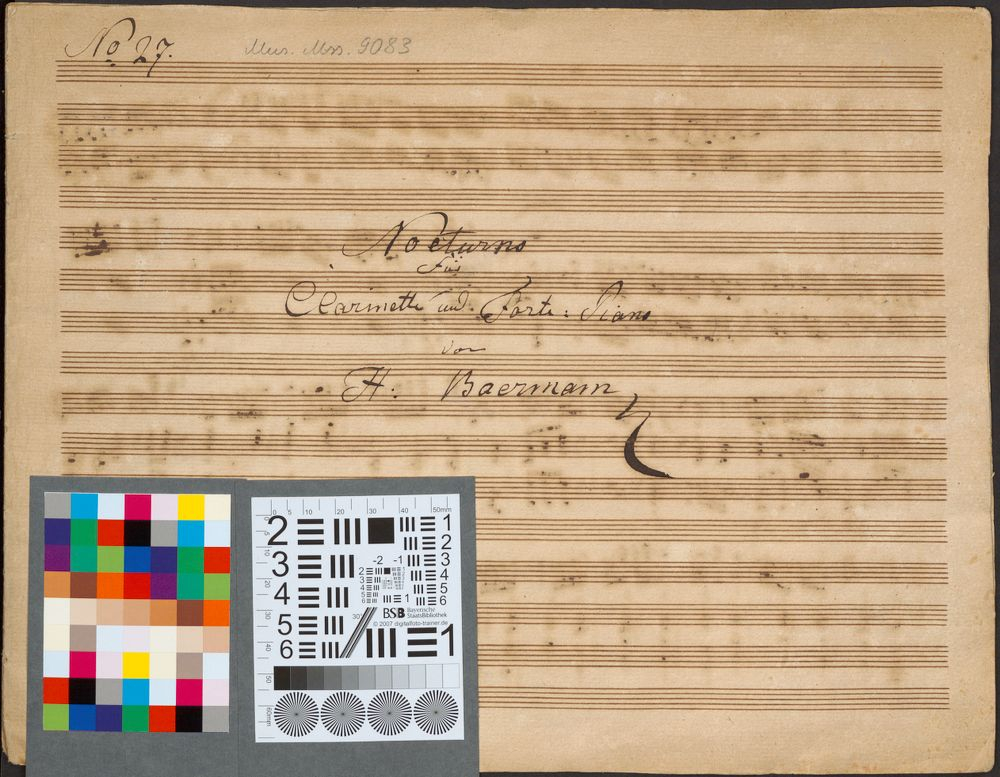 No. 27.
Mus. Mss. 9083
Nocturno
für
Clarinette und Forte: Piano
von
H. Baermann
0 5 10 20 30 40 50mm
2 1
2
3 3
4 4
5 5
6 6
-2 -1
BSB Bayerische
StaatsBibliothek
© 2007 digitalfoto-trainer.de
1